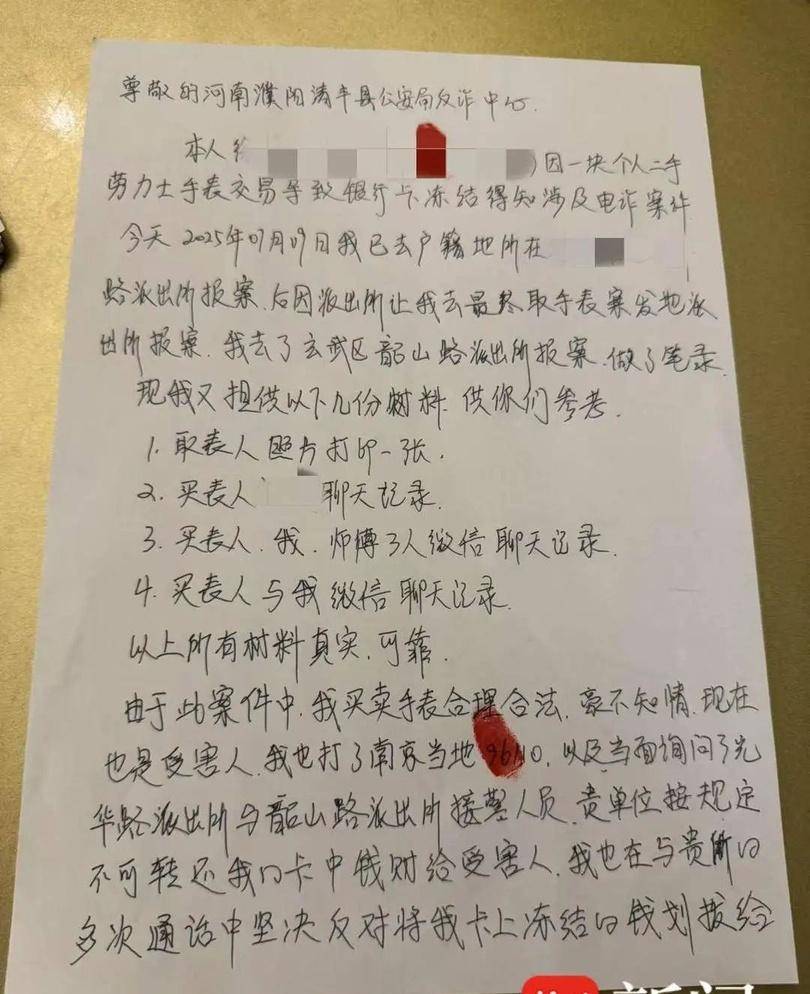 尊敬的河南濮阳清丰县公安局反诈中心.
本人 因一块个人二手
劳力士手表交易导致银行卡冻结得知涉及电诈案件
今天2025年07月09日我已去户籍地所在
路派出所报案.后因派出所让我去最终取手表案发地派
出所报案.我去了玄武区韶山路派出所报案.做了笔录
现我又提供以下几份材料.供你们参考.
1.取表人照片打印一张.
2.买表人 聊天记录.
3.买表人.我.师傅3人微信聊天记录.
4.买表人与我微信聊天记录.
以上所有材料真实.可靠.
由于此案件中.我买卖手表合理合法.豪不知情.现在
也是受害人.我也打了南京当地96110,以及当面询问了光
华路派出所与韶山路派出所接警人员.贵单位按规定
不可转还我的卡中钱财给受害人.我也在与贵所的
多次通话中坚决反对将我卡上冻结的钱划拨给
新闻